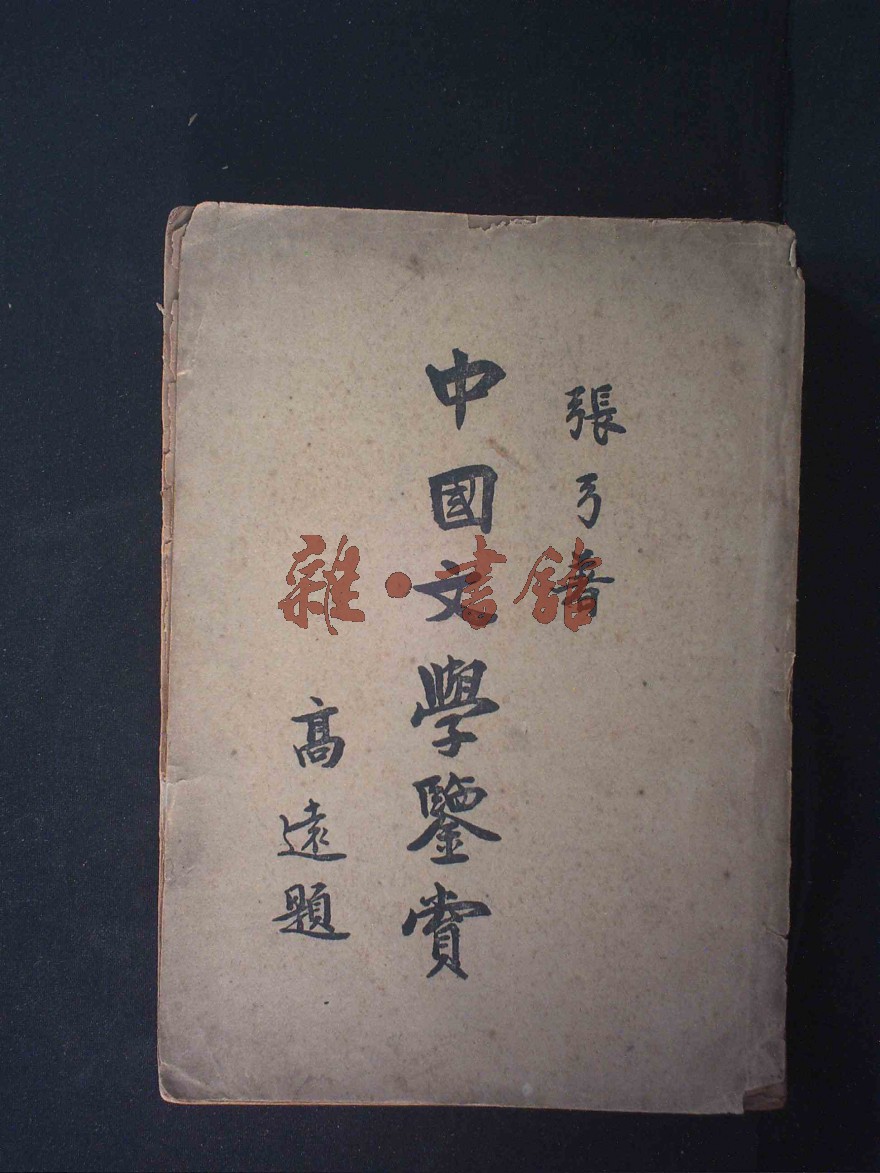 張弓著
中國文學鑒賞
高遠題
雜·書館